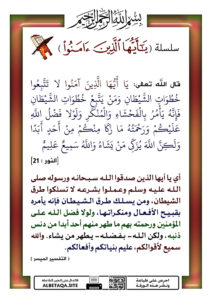 بِسْمِ اللَّهِ الرَّحْمَنِ الرَّحِيمِ
سلسلة ( يَٰٓأَيُّهَا ٱلَّذِينَ ءَامَنُوا۟ )
قال الله تعالى: يَا أَيُّهَا الَّذِينَ آمَنُوا لَا تَتَّبِعُوا
خُطُوَاتِ الشَّيْطَانِ وَمَنْ يَتَّبِعْ خُطُوَاتِ الشَّيْطَانِ
فَإِنَّهُ يَأْمُرُ بِالْفَحْشَاءِ وَالْمُنْكَرِ وَلَوْلَا فَضْلُ اللَّهِ
عَلَيْكُمْ وَرَحْمَتُهُ مَا زَكَا مِنْكُمْ مِنْ أَحَدٍ أَبَدًا
وَلَكِنَّ اللَّهَ يُزَكِّي مَنْ يَشَاءُ وَاللَّهُ سَمِيعٌ عَلِيمٌ
[النور : 21]
أي يا أيها الذين صدقوا الله سبحانه ورسوله صلى
الله عليه وسلم وعملوا بشرعه لا تسلكوا طرق
الشيطان، ومن يسلك طرق الشيطان فإنه يأمره
بقبيح الأفعال ومنكراتها، ولولا فضل الله على
المؤمنين ورحمته بهم ما طهر منهم أحد أبدا من دنس
ذنبه، ولكن الله -بفضله- يطهر من يشاء. والله
سميع لأقوالكم، عليم بنياتكم وأفعالكم.
( التفسير الميسر )
احرص على طباعة
ونشر هذه الورقة
ALBETAQA.SITE